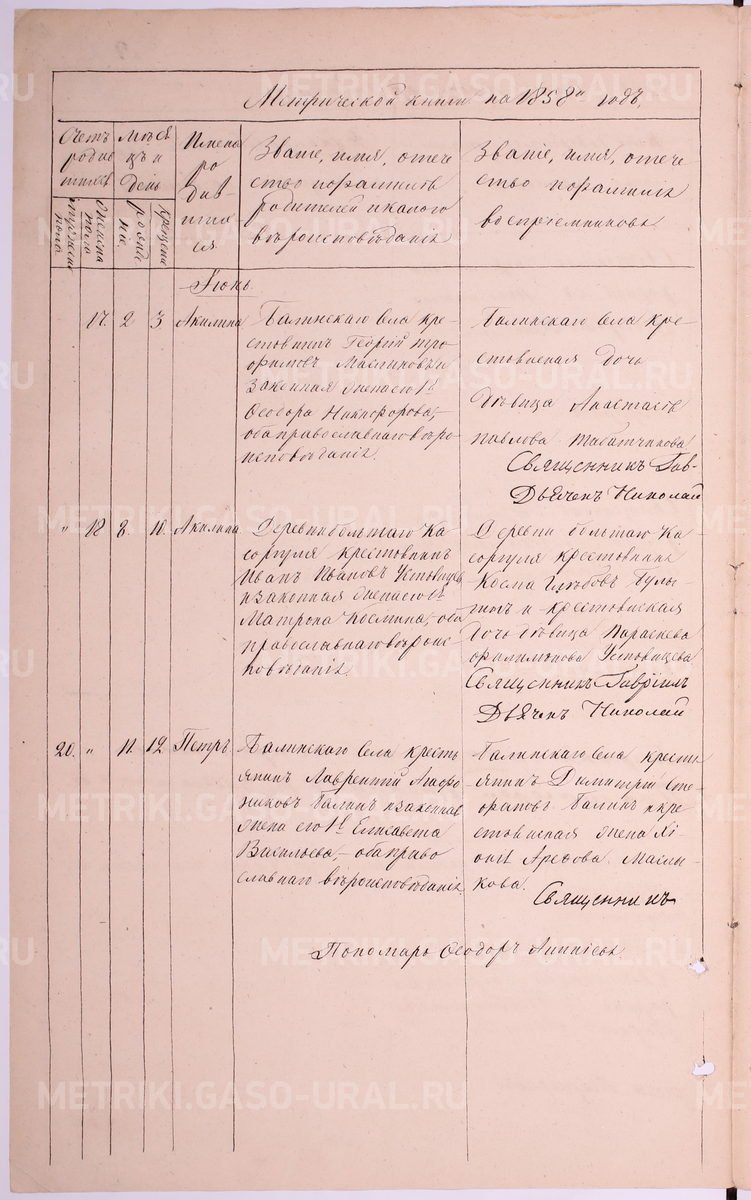 Метрической книги на 1858й годъ,
Счетъ родившихся
Мѣсяцъ и день
Имена родившихся
Званіе, имя, отече
ство и фамилія
родителей и какого
вѣроисповѣданія
Званіе, имя, отече
ство и фамилія
воспріемниковъ
мужеска пола
женска пола
рожденія
крещенія
Іюнь
17. 2 3 Акилина
Галинскаго села кре
стьянинъ Георгій Тро
фимовъ Масниковъ и
законная жена его 1й
Ѳеодора Никифорова,-
оба православнаго вѣро
исповѣданія.
Галинскаго села кре
стьянская дочь
дѣвица Анастасія
Павлова Табатчикова
Священникъ Гав-
Дьячекъ Николай
" 18 8. 10. Акилина.
Деревни большаго Ка
соргуля крестьянинъ
Иванъ Ивановъ Устовщевъ
и законная жена его 1й
Матрона Космина,- оба
православнаго вѣроис
повѣданія.
Деревни большаго Ка
соргуля крестьянинъ
Косма Глѣбовъ
и крестьянская
дочь дѣвица Параскева
Филимонова Устовщева
Священникъ Гавріилъ
Дьячекъ Николай
20. " 11. 12. Петръ
Галинскаго села кресть
янинъ Лаврентій Агафо
никовъ Галинъ и законная
жена его 1й Елисавета
Васильева,- оба право
славнаго вѣроисповѣданія.
Галинскаго села кресть
янинъ Димитрій Сте
Галинъ и кре
стьянская жена
Арефова Масни
кова.
Священникъ
Пономарь Ѳеодоръ
METRIKI.GASO-URAL.RU